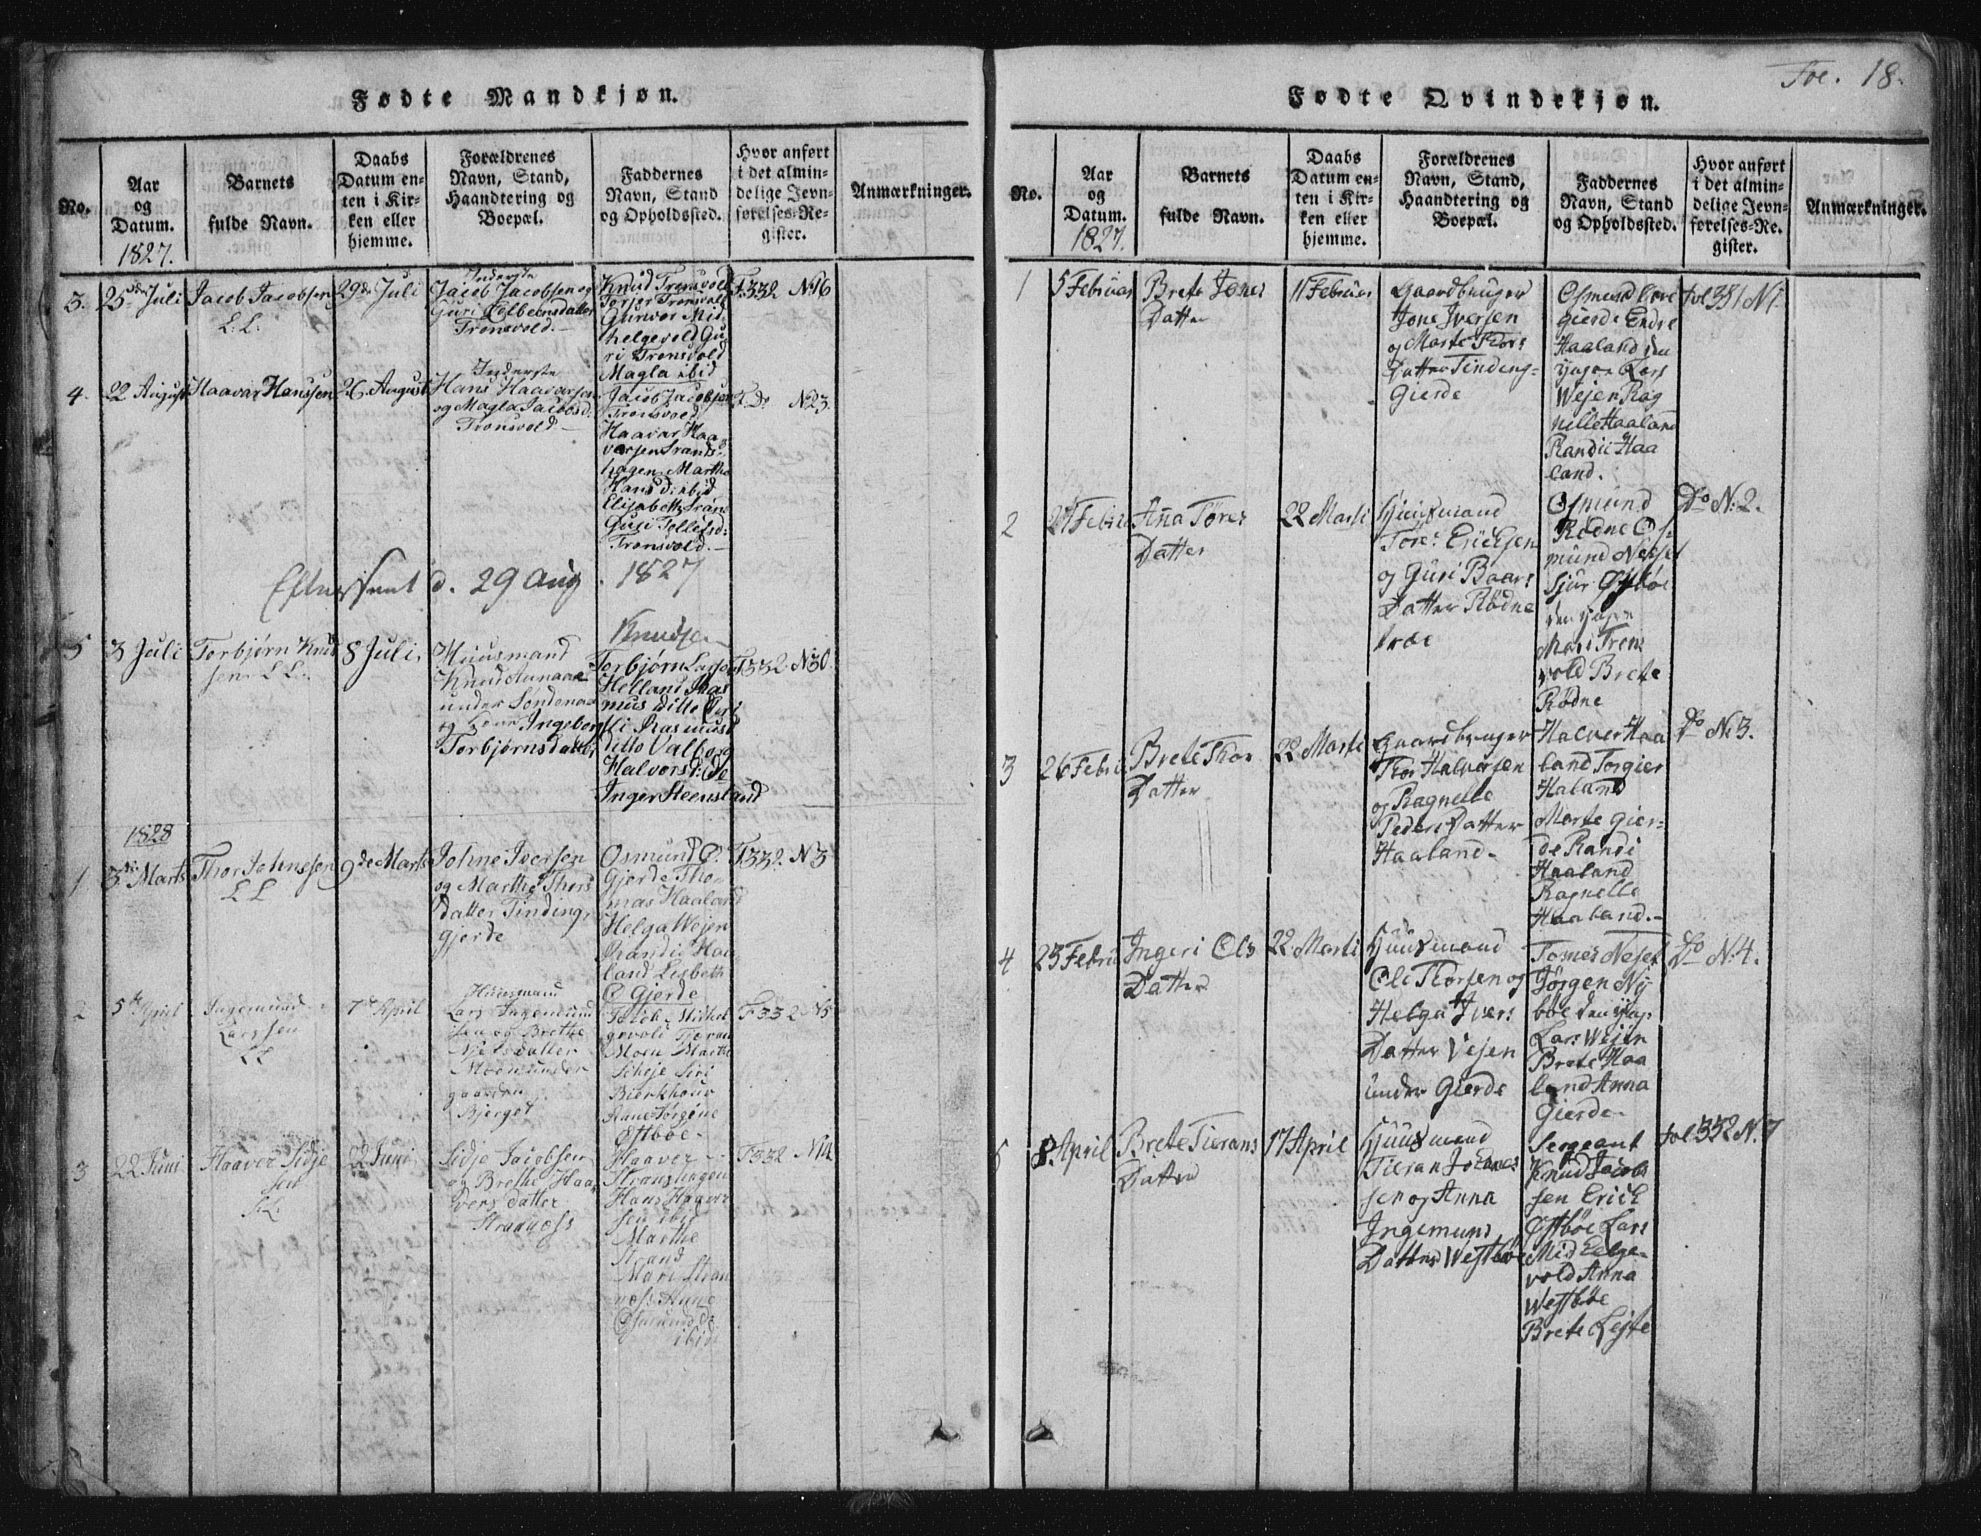 Fødte Mandkjøn.
No.
Aar
og
Datum.
1827.
Barnets
fulde Navn.
Daabs
Datum en-
ten i Kir-
ken eller
hjemme.
Forældrenes
Navn, Stand,
Haandtering og
Boepæl.
Faddernes
Navn, Stand
og Opholdssted.
Hvor anført
i det almin-
delige Jevn-
førelses-Re-
gister.
Anmærkninger.
3.
25de Juli
Jacob Jacobsen
L. L.
29de Juli
Inderste
Jacob Jacobsen og
Guri
Tronsvold.
Knud Tronsvold
Torger Tronsvold
Gunvor Mid
helgevold Gu
ri Tronsvold
Magla ibid
F.332 N16
4.
22 August
Haavar Hansen
26 August
Inderste
Hans Haavarsen
og Magla Jacobsd.
Tronsvold.
Jacob Jacobsen
Tronsvold
Haavar Haa
versen Strands
hagen Marthe
Hans D. ibid
Elisabeth
Guri Tollefsd:
Tronsvold.
F. Do N23.
Efterseet d. 29 Aug. 1827
5
3 Juli
Torbjørn Knud
sen L L.
8 Juli.
Huusmand
Knud
under Søndena
og Kone Ingeborg
Torbjørnsdatter
Knudsen
Torbjørn Larsen
Helland Ras
mus ditto
Rasmus
ditto Valborg
Halvorsd:
Inger Steensland
F332. N30.
1828
1
3de Marts
Thor Johnssen
L L
9de Marts
Johne Iversen
og Marthe Thors
datter Tinding,
gjerde
Osmund Ø.
Gjerde Tho-
mas Haaland
Helga Wejen
Randi Haa
land Lisbeth
Ø Gjerde
F.332. N3
2
5te April
Ingemund
Larssen
LL
7de April
Huusmand
Lars Ingemund
sen og Brethe
Nielsdatter
Moen under
gaarden
Bjerget
Michel
gevold Tieran
Moen Marthe
Siri
Bierkhous
Anne Jørgine
Østbøe
F332 N5
3
22 Juni
Haaver Sidse
sen
L.L.
22 Juni
Sidse Jacobsen
og Brethe Haa
versdatter
Strandnæss
Haaver
Strandhagen
Hans Haaver
sen ibid
Marthe
Strand
Mari Stran
næss Anne
Osmunds
ibid
F332 N14
Fol. 18.
Fødte Qvindekjøn.
No.
Aar
og
Datum.
1827.
Barnets
fulde Navn.
Daabs
Datum en-
ten i Kir-
ken eller
hjemme.
Forældrenes
Navn, Stand,
Haandtering og
Boepæl.
Faddernes
Navn, Stand
og Opholdssted.
Hvor anført
i det almin-
delige Jevn-
førelses-Re-
gister.
Anmærkninger.
1
5 Februar
Brete Jones
Datter
11 Februar
Gaardbruger
Jone Iversen
og Marte Thors
Datter Tinding-
Gierde
Osmund
Gierde Endre
Haaland den
yngre Lars
Wejen Rag
nille Haaland
Randi Haa
land.
fol 331 N1
2
Febru
Anna Tores
Datter
22 Marti
Huusmand
Tore Ericksen
og Guri Baars
Datter Rødne
Osmund
Rødne Os
mund Nesset
Sjur Østbøe
den yngre
Mari Trons
vold Brete
Rødne
Do N. 2.
3
26 Febru
Brete Thor
Datter
22 Marti
Gaardbruger
Thor Halversen
og Ragnelle
Peders Datter
Haaland.
Halver Haa
land Torgier
Haland
Marte Gier-
de Randi
Haaland
Ragnelle
Haaland.
Do N. 3.
4
23 Febru
Ingeri Ols
Datter
22 Marti
Huusmand
Ole Thorsen og
Helga Ivers
Datter Vejen
under Gierde
Tomes Neset
Jørgen Ny
bøe den yng:
Lars Wejen
Brete Haa
land Anna
Gierde
Do N. 4.
5
8 April
Brete Tierans
Datter
17 April
Huusmand
Tieran Johanes
sen og Anna
Ingemund
Datter Westbøe
Sergeant
Knud Jacob
sen Erick
Østbøe Lars
Midhelge-
vold Anna
Westbøe
Brete Leite
fol 332 N. 7